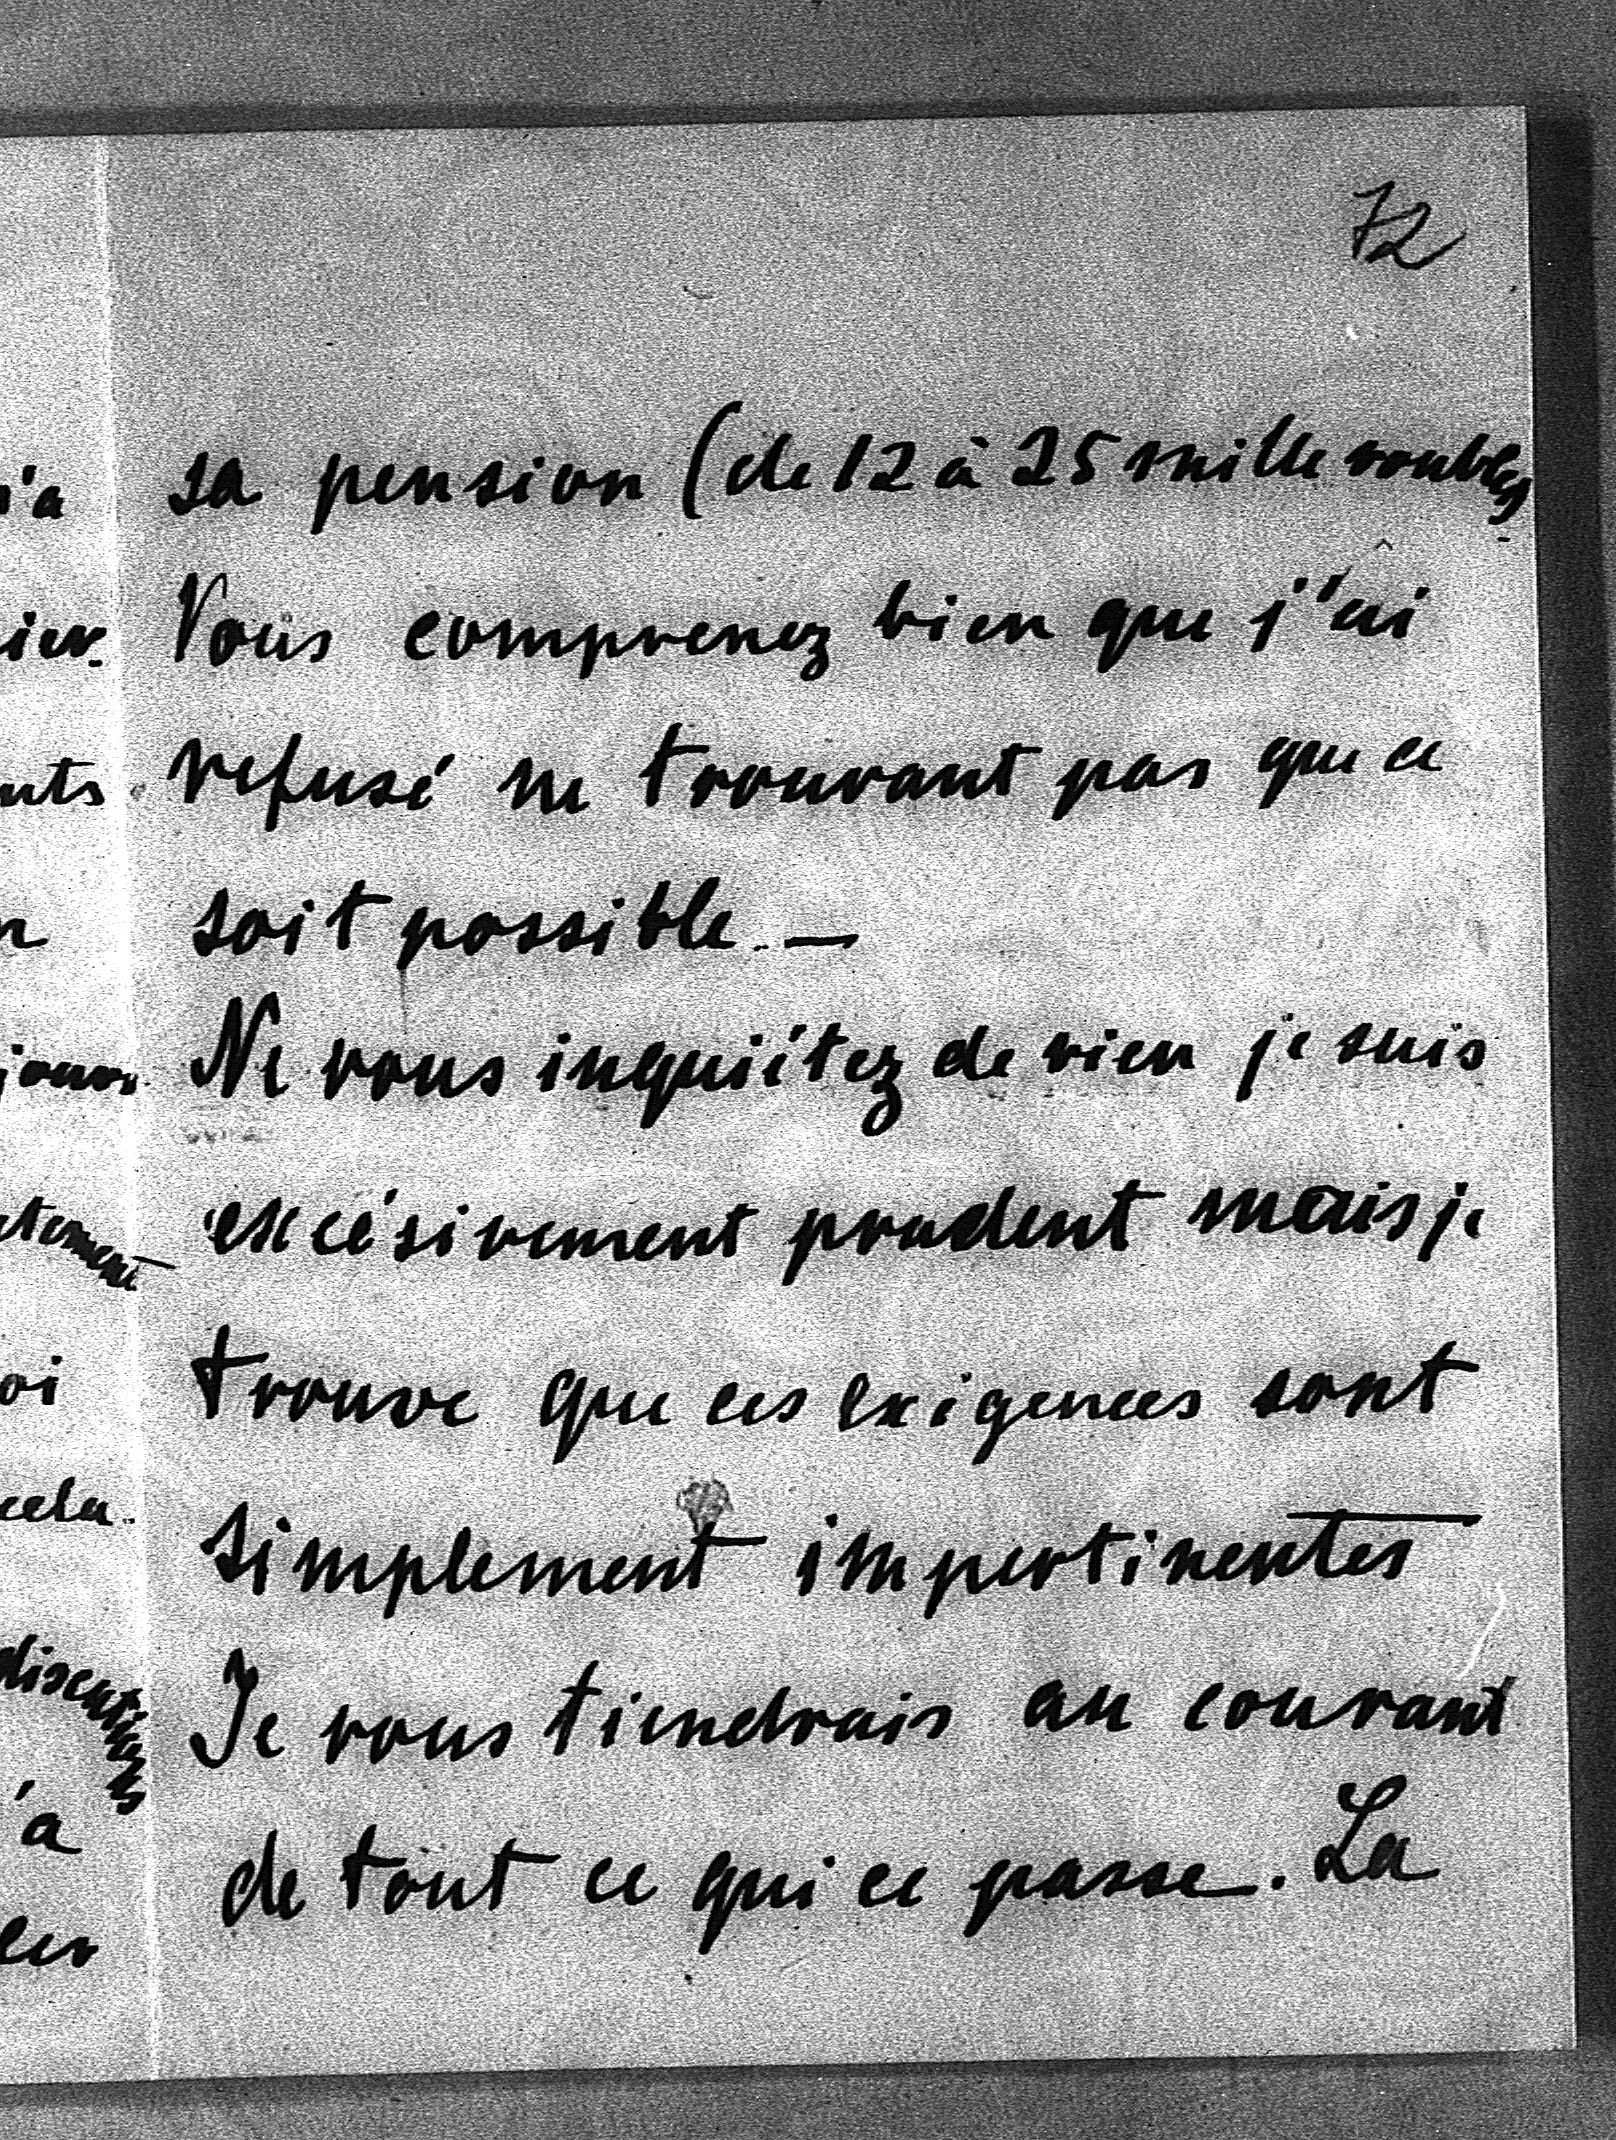 72
sa pension (de 12 à 25 mille roubles
Vous comprenez bien que j'ai
refusé ne trouvant pas que ce
soit possible. —
Ne vous inquiétez de rien je suis
excésivement prudent mais je
trouve que ces exigences sont
simplement impertinentes
Je vous tiendrais au courant
de tout ce qui ce passe. La